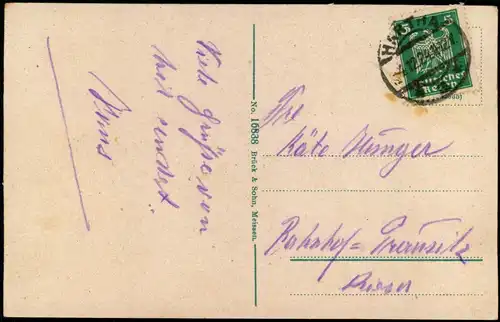 Viele Grüße von
hier sendet
Hans
No. 16838 Brück & Sohn, Meissen.
5
Deutsches
Reich
Käte Hunger
Bahnhof=
Riesa